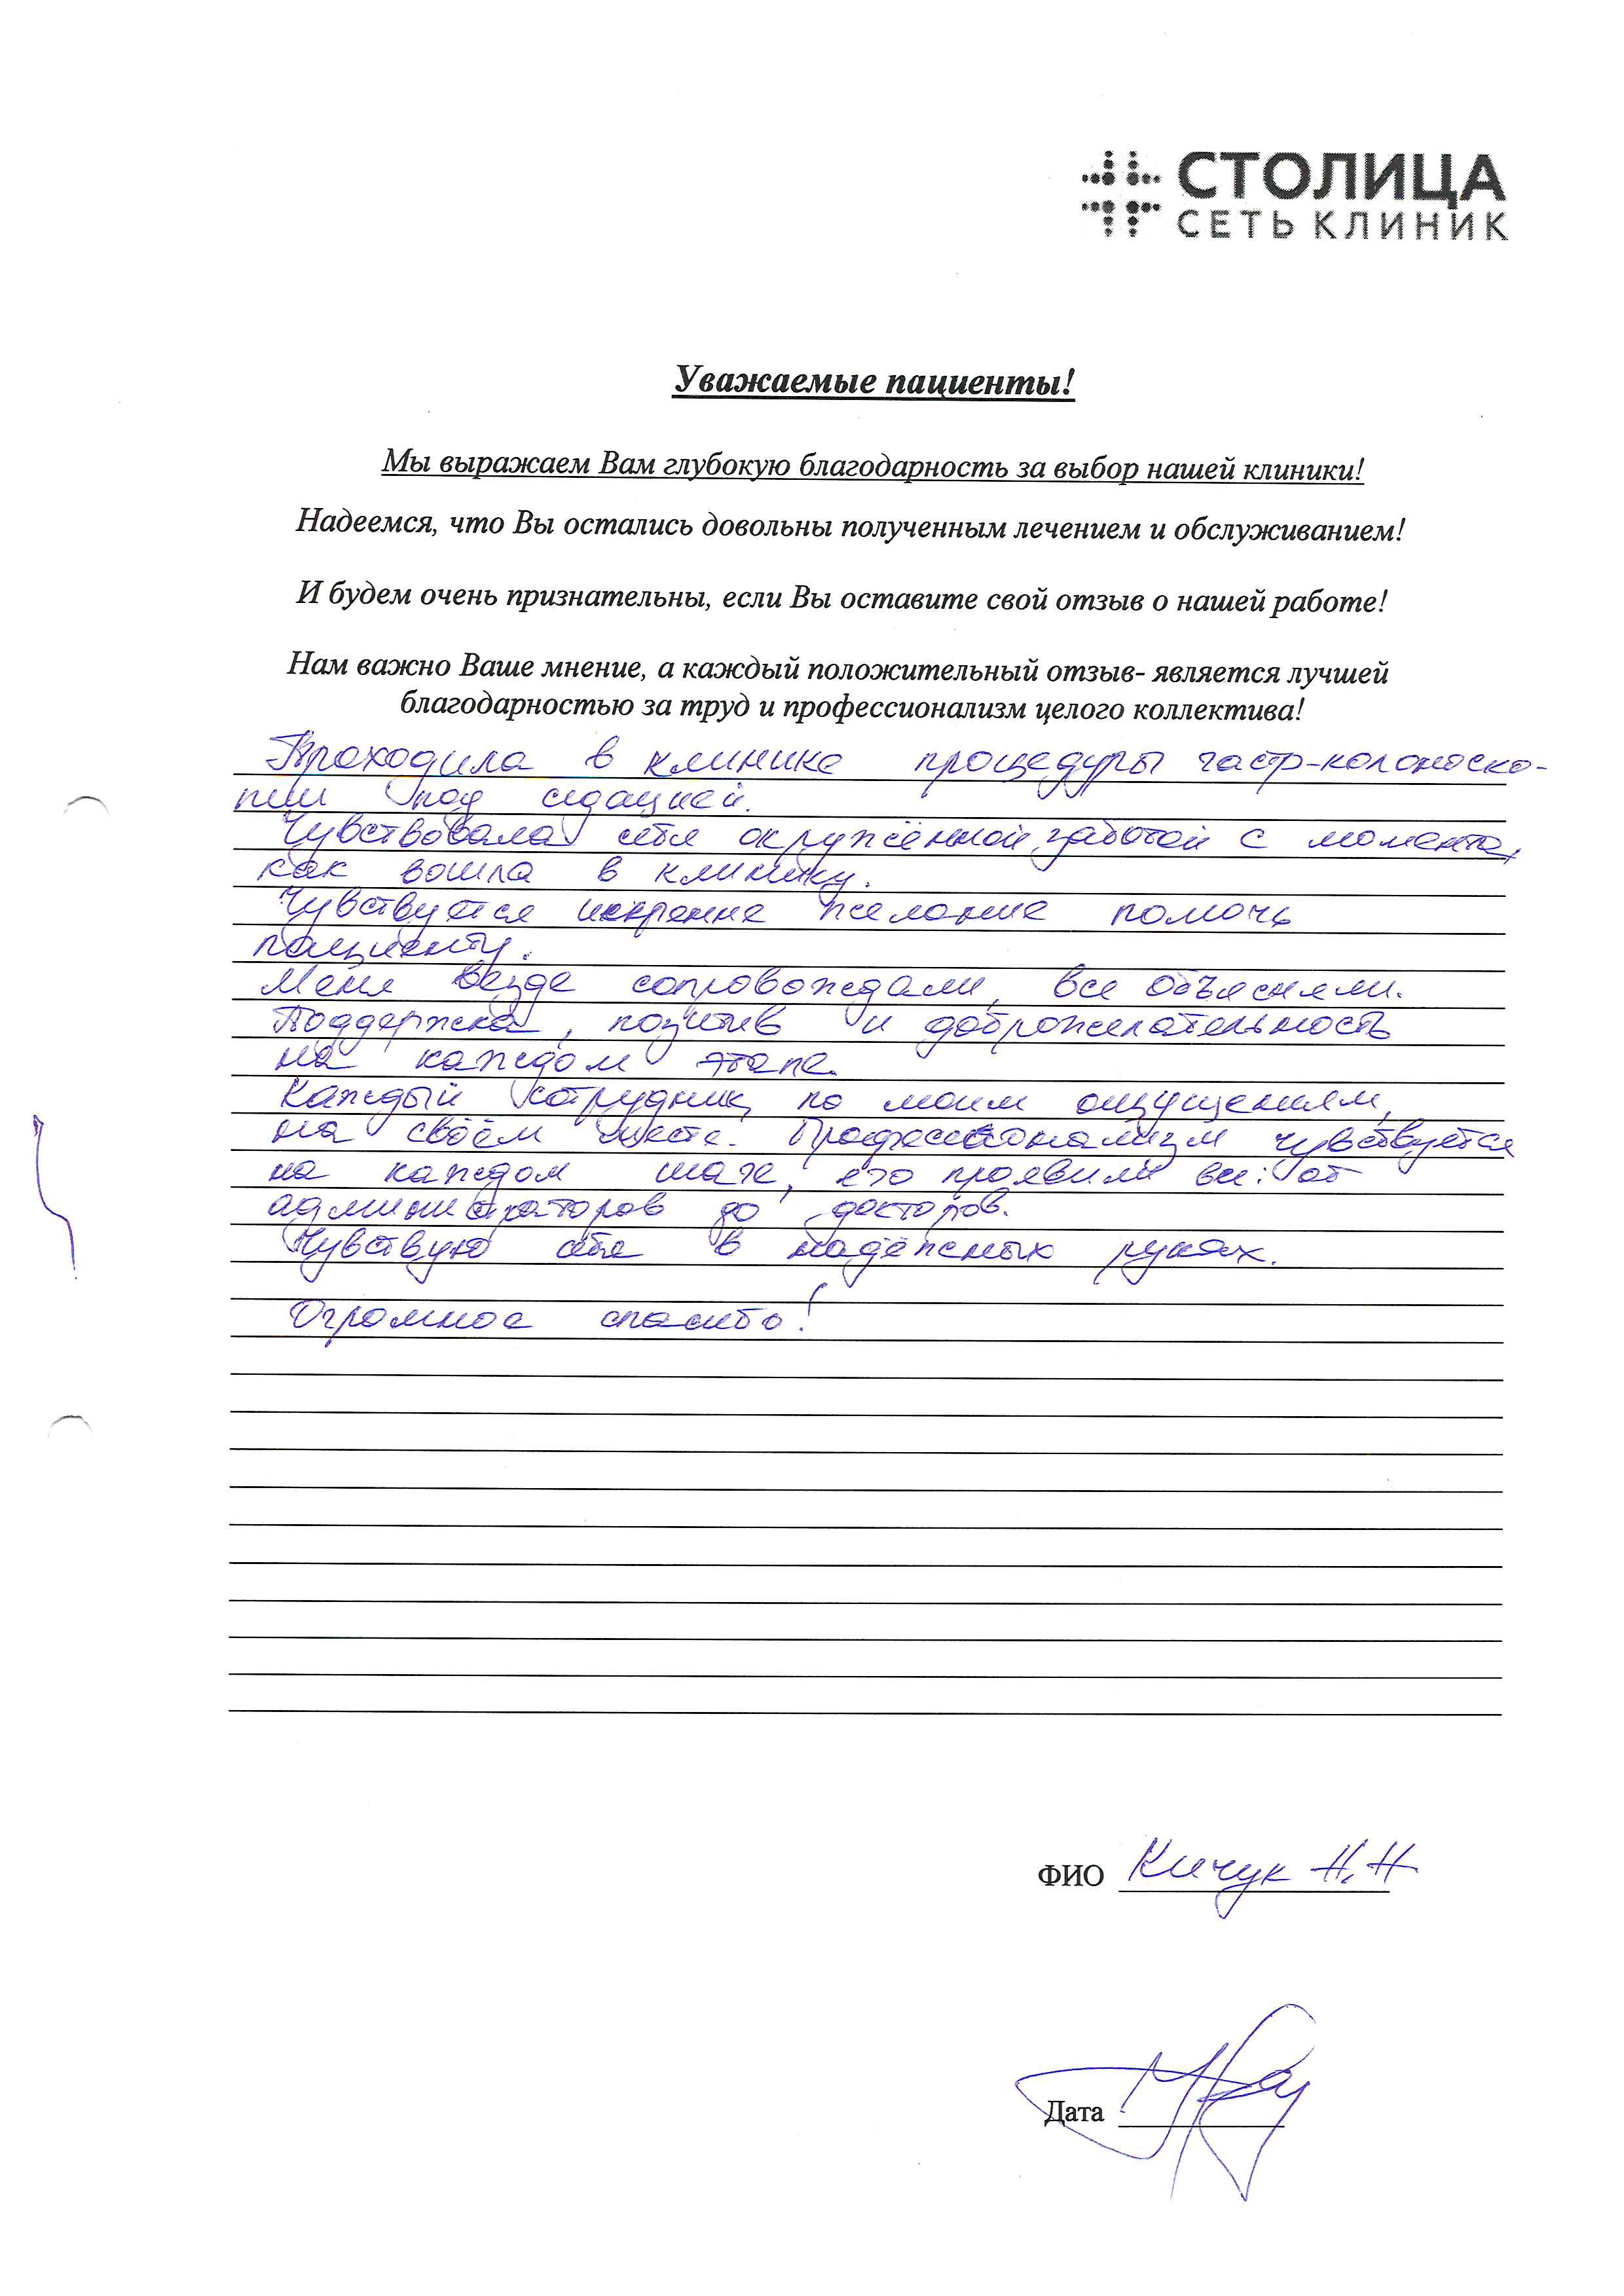 СТОЛИЦА
СЕТЬ КЛИНИК
Уважаемые пациенты!
Мы выражаем Вам глубокую благодарность за выбор нашей клиники!
Надеемся, что Вы остались довольны полученным лечением и обслуживанием!
И будем очень признательны, если Вы оставите свой отзыв о нашей работе!
Нам важно Ваше мнение, а каждый положительный отзыв- является лучшей
благодарностью за труд и профессионализм целого коллектива!
Проходила в клинике процедуры гастр-колоноско-
пии под седацией.
Чувствовала себя окружённой заботой с момента,
как вошла в клинику.
Чувствуется искренне желание помочь
пациенту.
Меня везде сопровождали, все объясняли.
Поддержка, позитив и доброжелательность
на каждом этапе.
Каждый сотрудник, по моим ощущениям,
на своём месте. Профессионализм чувствуется
на каждом шаге, его проявили все: от
администраторов до докторов.
Чувствую себя в надёжных руках.
Огромное спасибо!
ФИО Кичук Н.Н
Дата